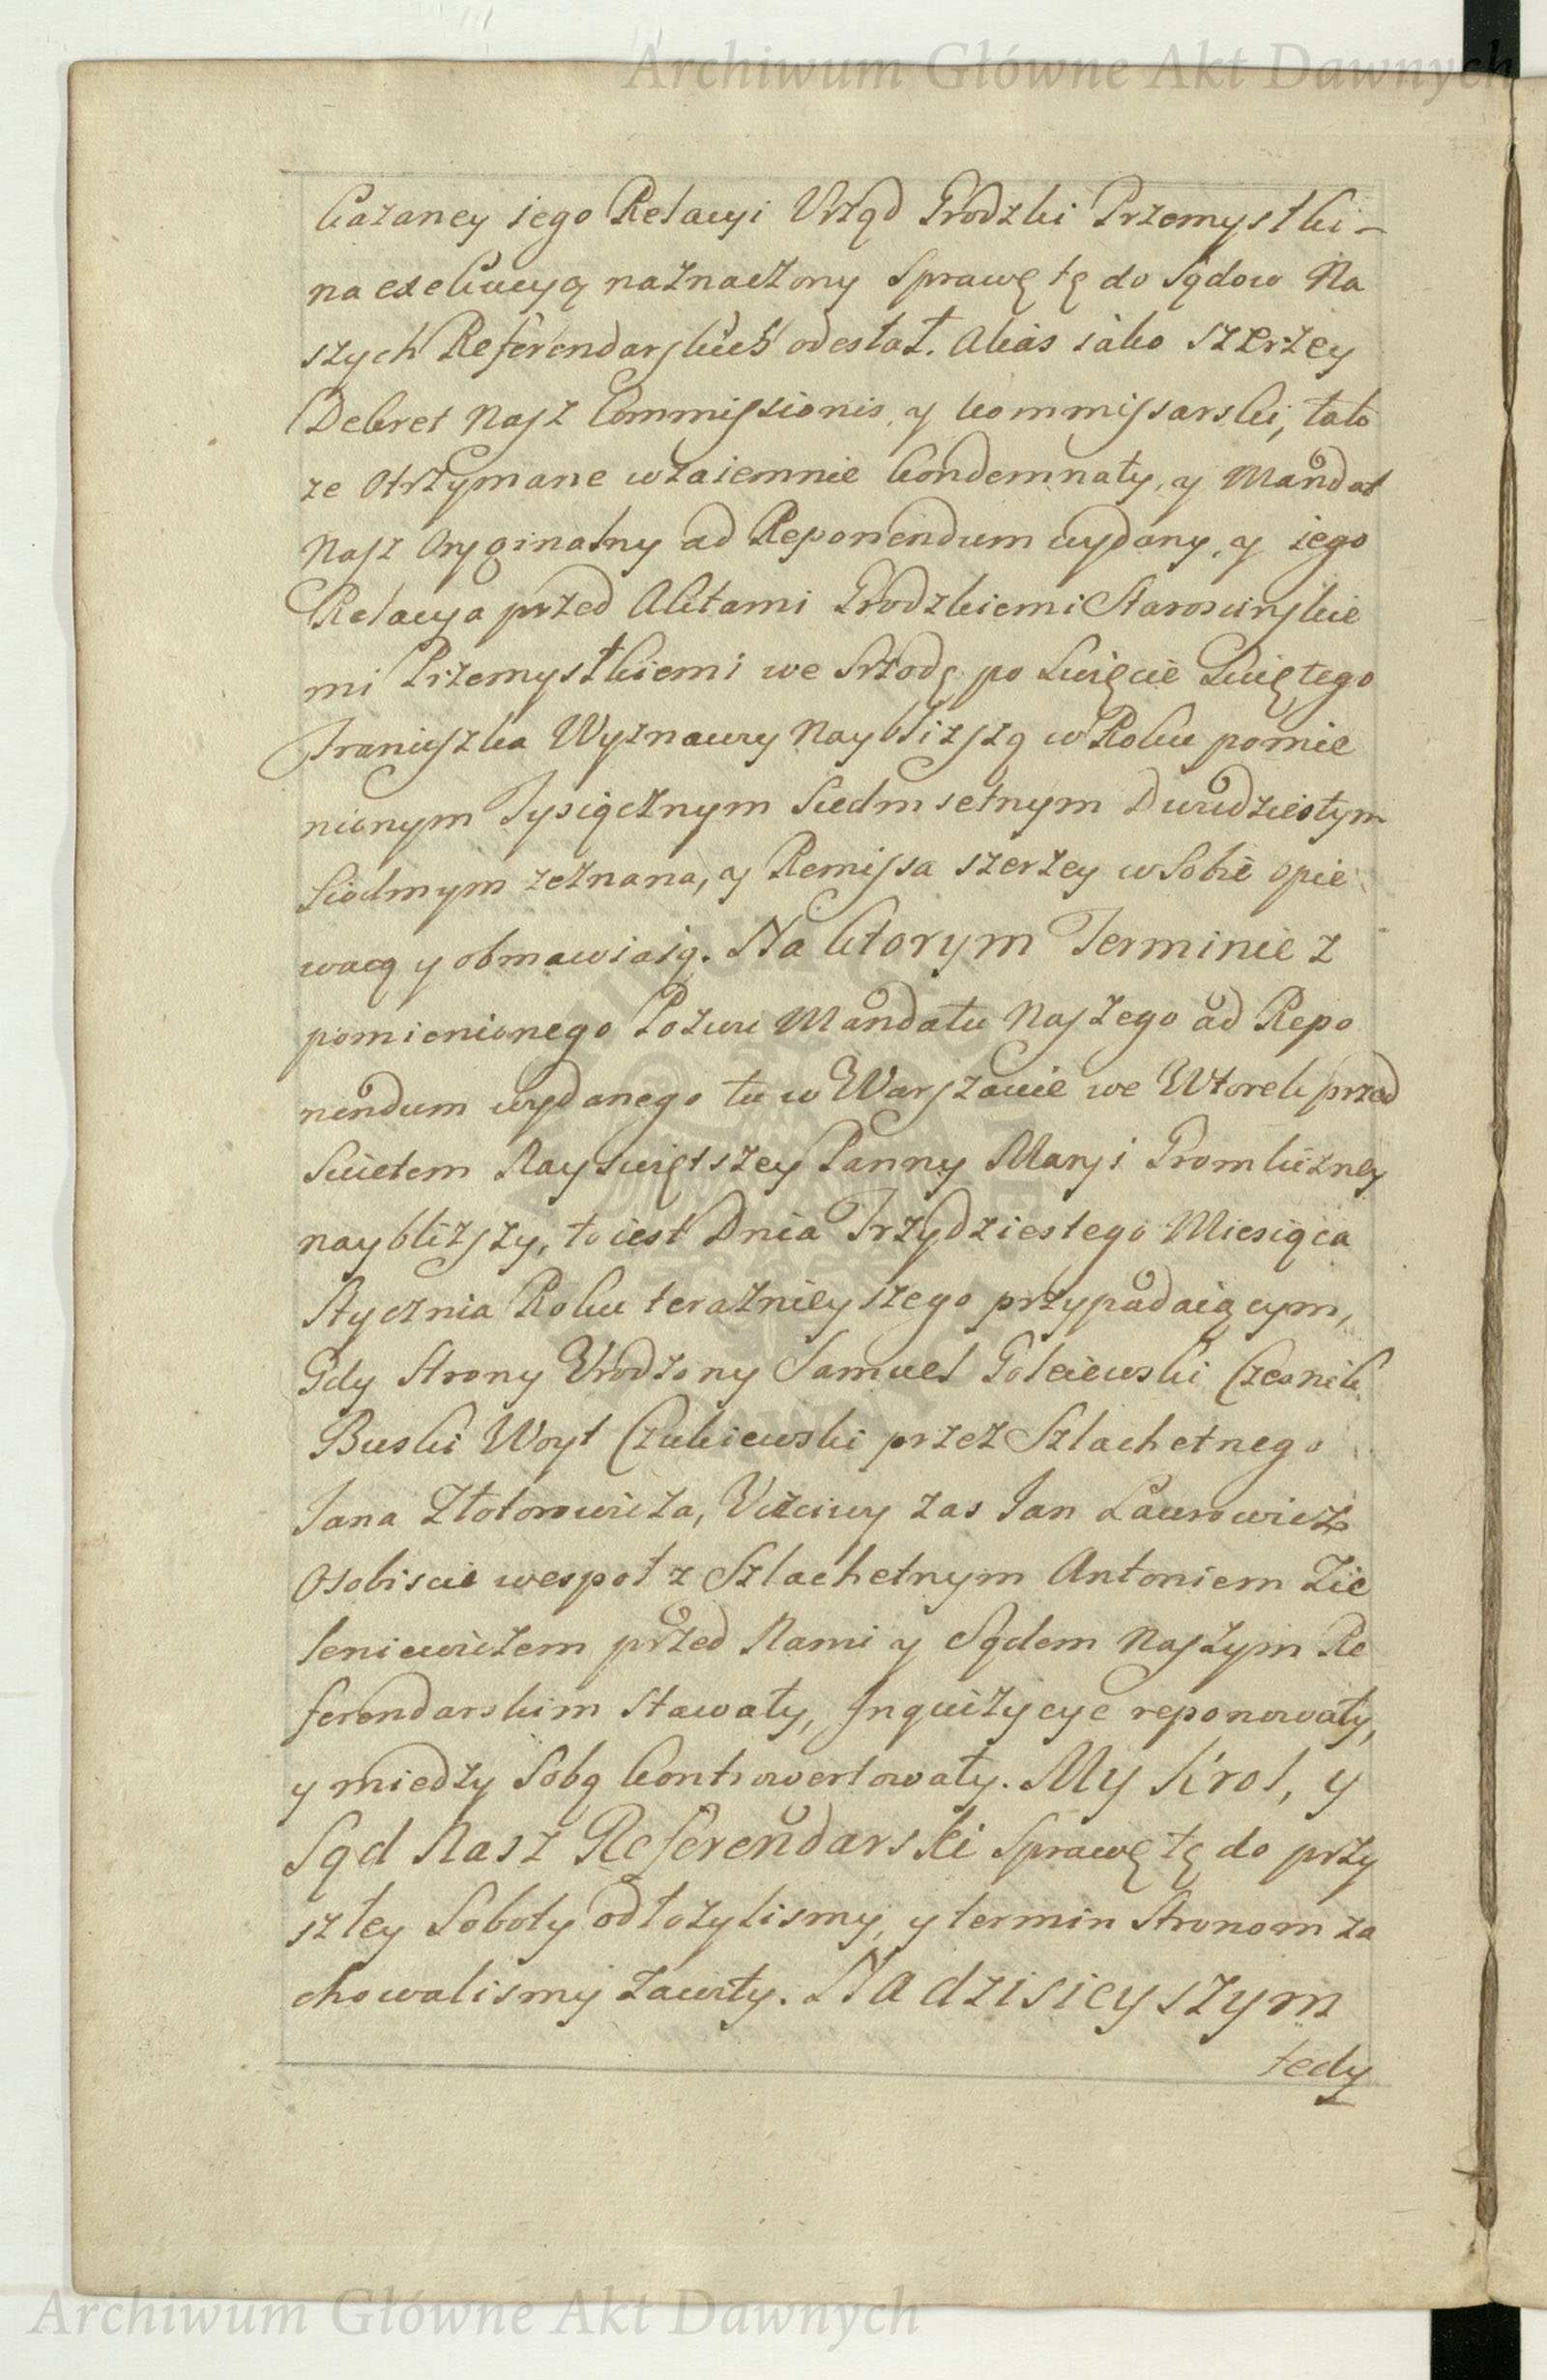 Archiwum Główne Akt Dawnych
kazaney iego Relacyi Urząd Grodzki Przemyslki
na exekucyą naznaczony Sprawę tę do Sądow Na
szych Referendarskich odesłał. Akäs iako szerzey
Dekret Nasz Commissionis, y kommissarski, tak
ze otrzymane wzaiemnie kondemnaty, y Mandat
Nasz Oryginalny ad Reponendum wydany, y iego
Relacya przed Aktami Grodzkiemi Staroscinskie
mi Przemysłkiemi we Srzodę po Swięcie Swiętego
Franciszka Wyznawcy Naybliższą w Roku pomie
nionym Tysiącznym Siedmsetnym Dwudziestym
Siodmym zeznana, y Remissa szerzey w Sobie opie
waią y obmawiaią. Na ktorym Terminie z
pomienionego Pozwu Mandatu Naszego ad Repo
nendum wydanego tu w Warszawie we Wtorek przed
Swietem Nayswiętszey Panny Maryi Gromniczney
naybliższy, to iest Dnia Trzydziestego Miesiąca
Stycznia Roku teraznieyszego przypadaiącym,
Gdy Strony Urodzony Samuel Goleiewski Czesnik
Buski Woyt Czukiewski przez Szlachetnego
Jana Złotorowicza, Uczciwy zas Jan Laurowicz
Osobiscie wespoł z Szlachetnym Antoniem Zie
leniewiczem przed Nami y Sądem Naszym Re
ferendarskim Stawały, Inquizycye reponowały,
y miedzy Sobą kontrowertowały. My Krol, y
Sąd Nasz Referendarski Sprawę tę do przy
szłey Soboty odłozylismy, y termin Stronom za
chowalismy zawity. Na dzisieyszym
tedy
Archiwum Główne Akt Dawnych